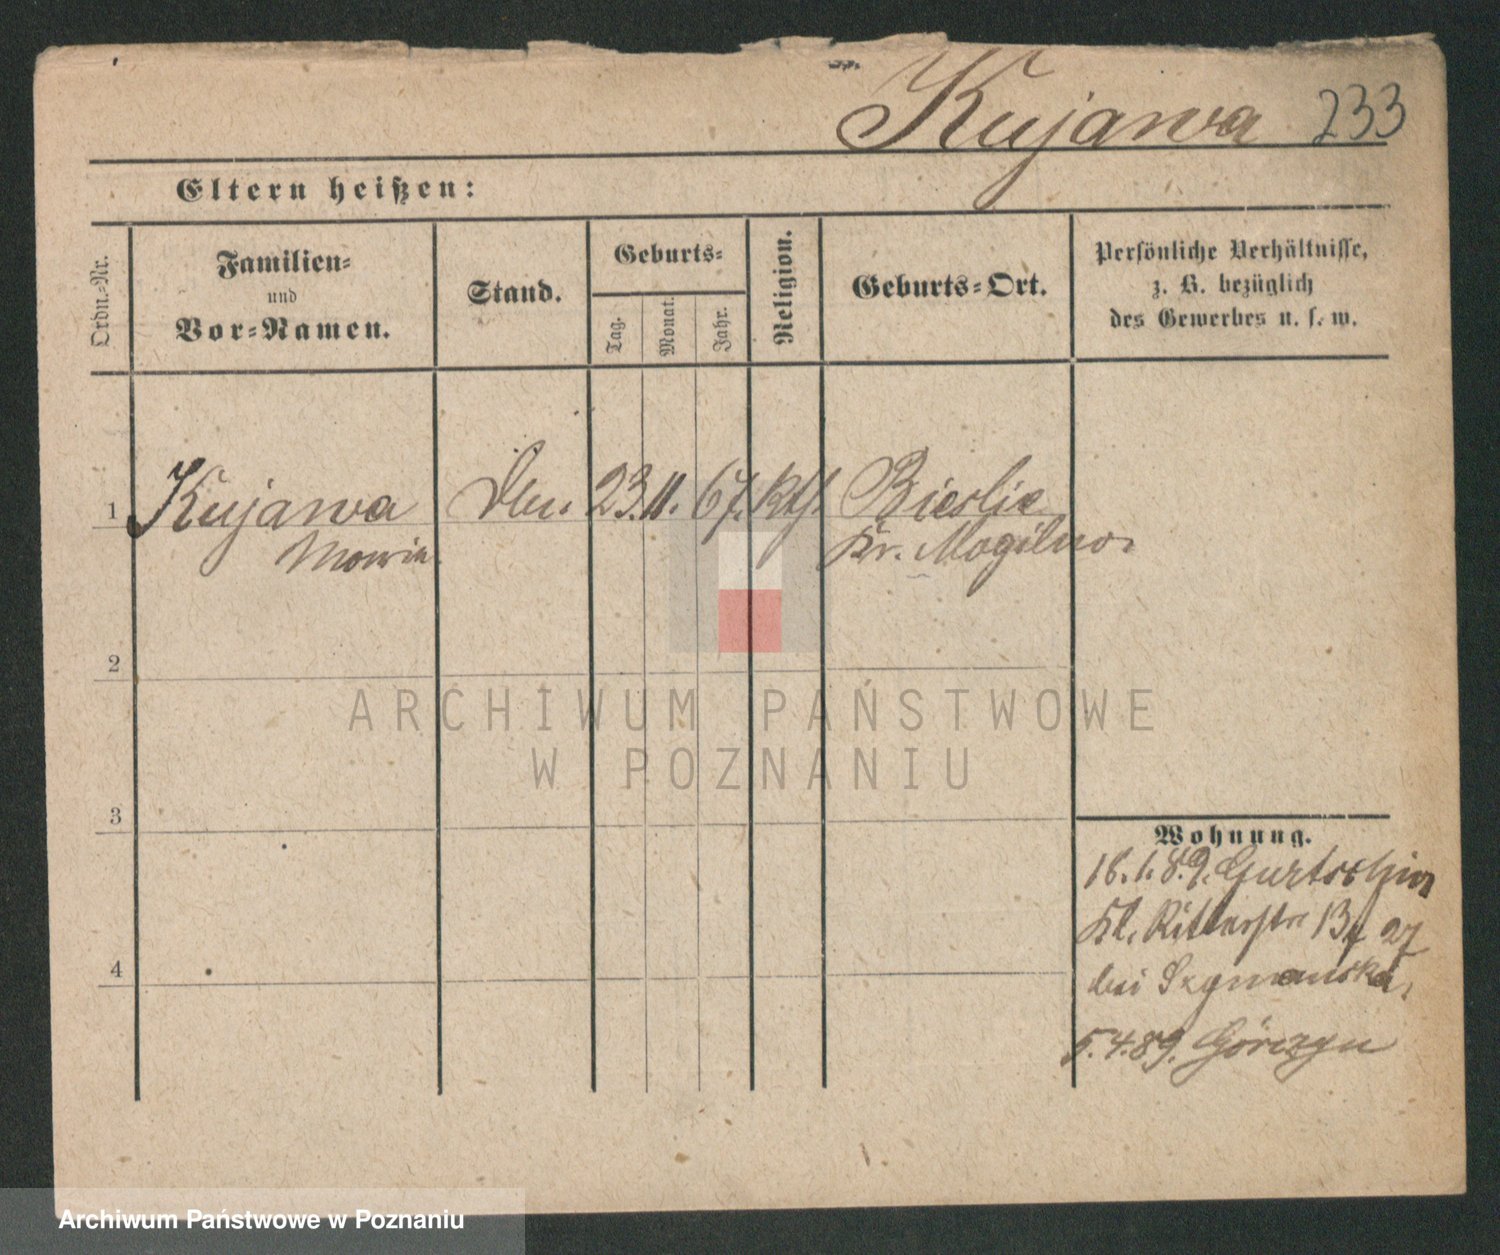 Kujawa 233
Eltern heißen:
Ordn.-Nr.
Familien-
und
Vor-Namen.
Stand.
Geburts-
Tag.
Monat.
Jahr.
Religion.
Geburts-Ort.
Persönliche Verhältnisse,
z. B. bezüglich
des Gewerbes u. s. w.
1 Kujawa 23. 11. 67. kth. Bieslin
Kr. Mogilno.
2
3
4
Wohnung.
18.1.89. Gurtschin
Kl. Ritterstr 13 27
bei Szymanska.
5.4.89. Górczyn
ARCHIWUM PAŃSTWOWE
W POZNANIU
Archiwum Państwowe w Poznaniu